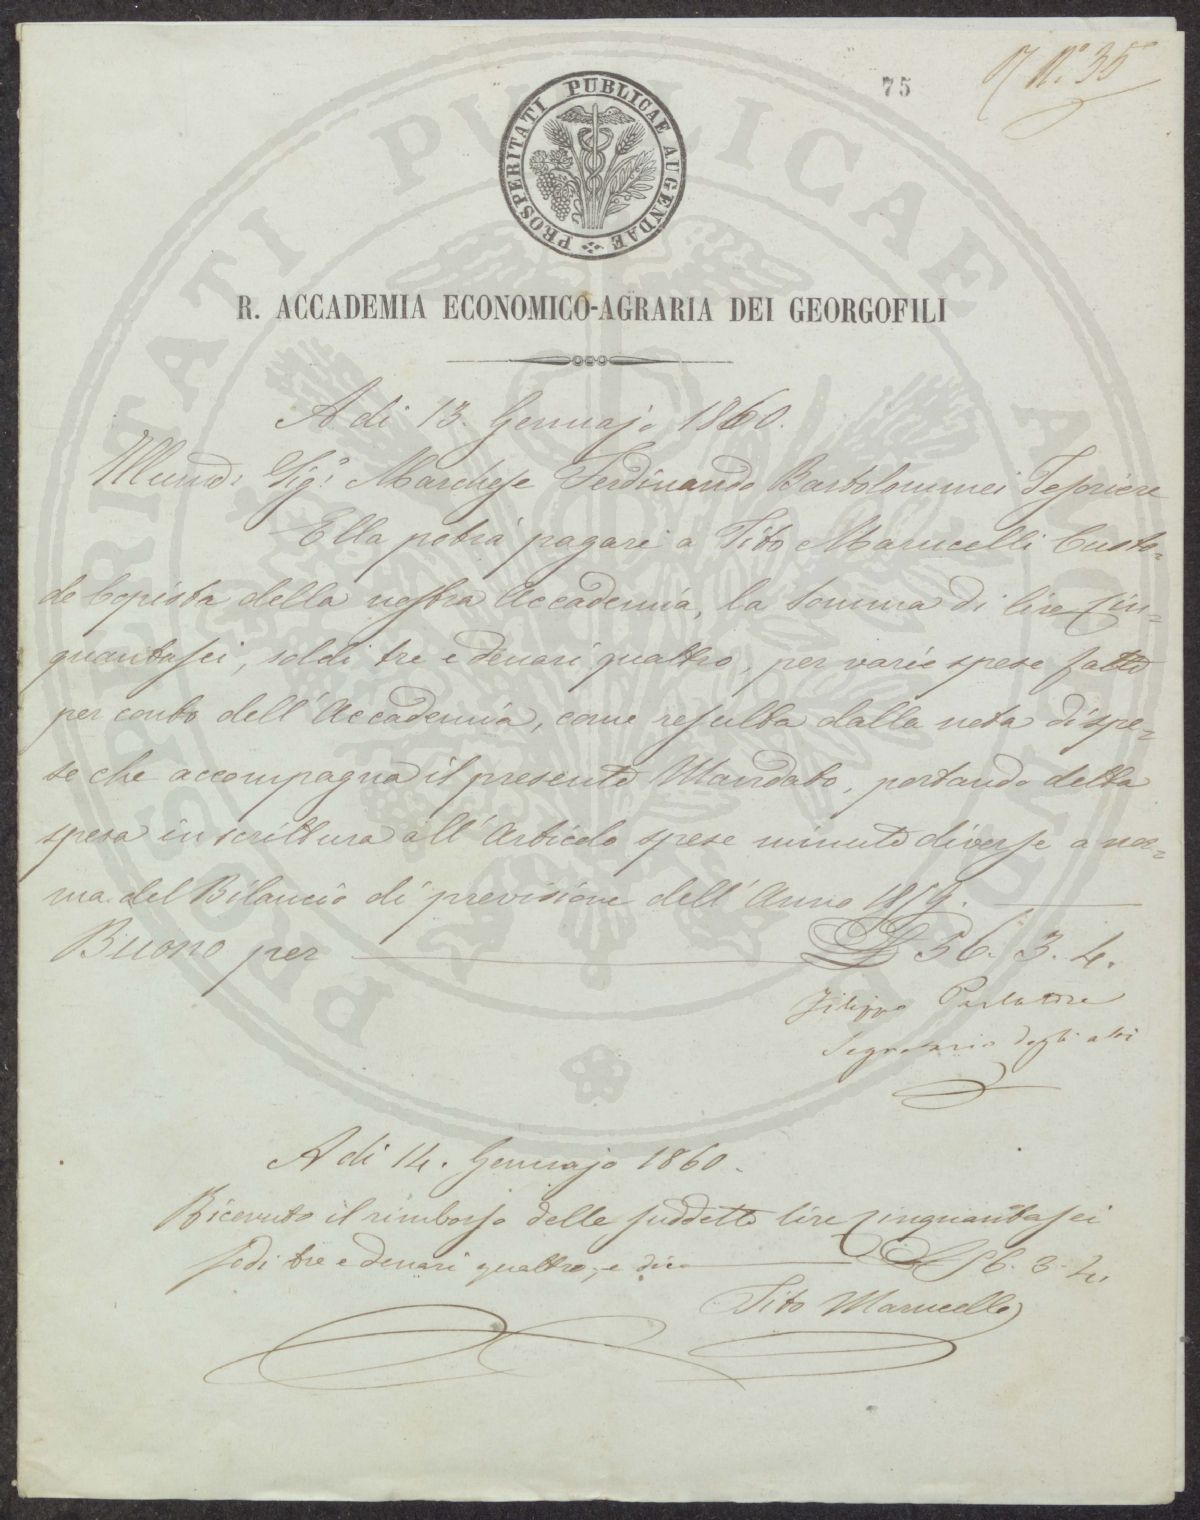 N.° 35
75
PROSPERITATI PUBLICAE AUGENDAE
R. ACCADEMIA ECONOMICO-AGRARIA DEI GEORGOFILI
A di 13. Gennajo 1860.
Sig.r Marchese Ferdinando Bartolommei Tesoriere
Ella potrà pagare a Tito Marucelli Custo=
de Copista della nostra Accademia, la Somma di lire Cin=
quantasei, soldi tre e denari quattro, per varie spese fatte
per conto dell' Accademia, come resulta dalla nota di spe=
se che accompagna il presente Mandato, portando detta
spesa in scrittura all' Articolo spese minute diverse a nor=
ma del Bilancio di previsione dell' Anno 1859.
Buono per L 56. 3. 4.
Filippo Parlatore
Segretario degli atti
A di 14. Gennajo 1860.
Ricevuto il rimborso delle suddette lire Cinquantasei
soldi tre e denari quattro, e dico L 56. 3. 4.
Tito Marucelli